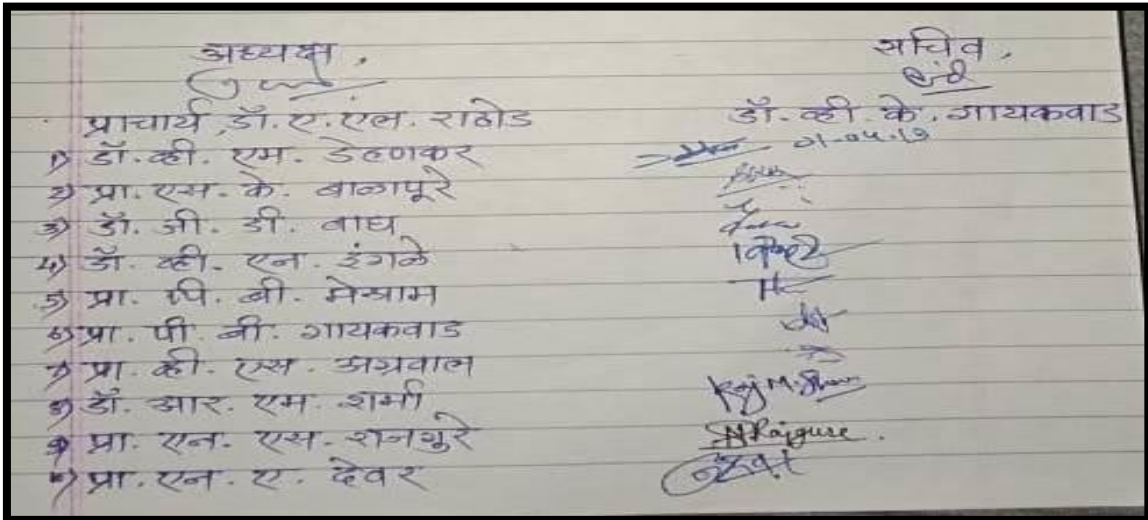 अध्यक्ष, सचिव,
प्राचार्य डॉ. ए. एल. राठोड डॉ. व्ही. के. गायकवाड
1) डॉ. व्ही. एम. डेहणकर
2) प्रा. एस. के. बाळापूरे
3) डॉ. जी. डी. वाघ
4) डॉ. व्ही. एन. इंगळे
5) प्रा. पी. बी. मेश्राम
6) प्रा. पी. बी. गायकवाड
7) प्रा. व्ही. एस. अग्रवाल
8) डॉ. आर. एम. शर्मा
9) प्रा. एन. एस. राजगुरे Rajgure.
10) प्रा. एन. ए. देवर